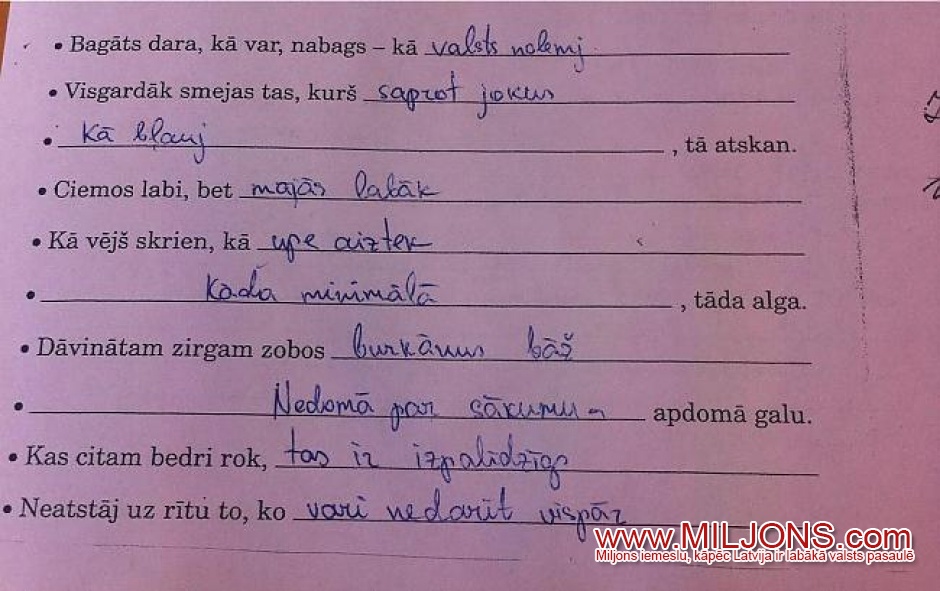 • Bagāts dara, kā var, nabags – kā valsts nolemj
• Visgardāk smejas tas, kurš saprot jokus
• Kā bļauj, tā atskan.
• Ciemos labi, bet majās labāk
• Kā vējš skrien, kā upe aiztek
• Kāda minimālā, tāda alga.
• Dāvinātam zirgam zobos burkānus bāž
• Nedomā par sākumu – apdomā galu.
• Kas citam bedri rok, tas ir izpalīdzīgs
• Neatstāj uz rītu to, ko vari nedarīt vispār
www.MILJONS.com
Miljons iemeslu, kāpēc Latvija ir labākā valsts pasaulē